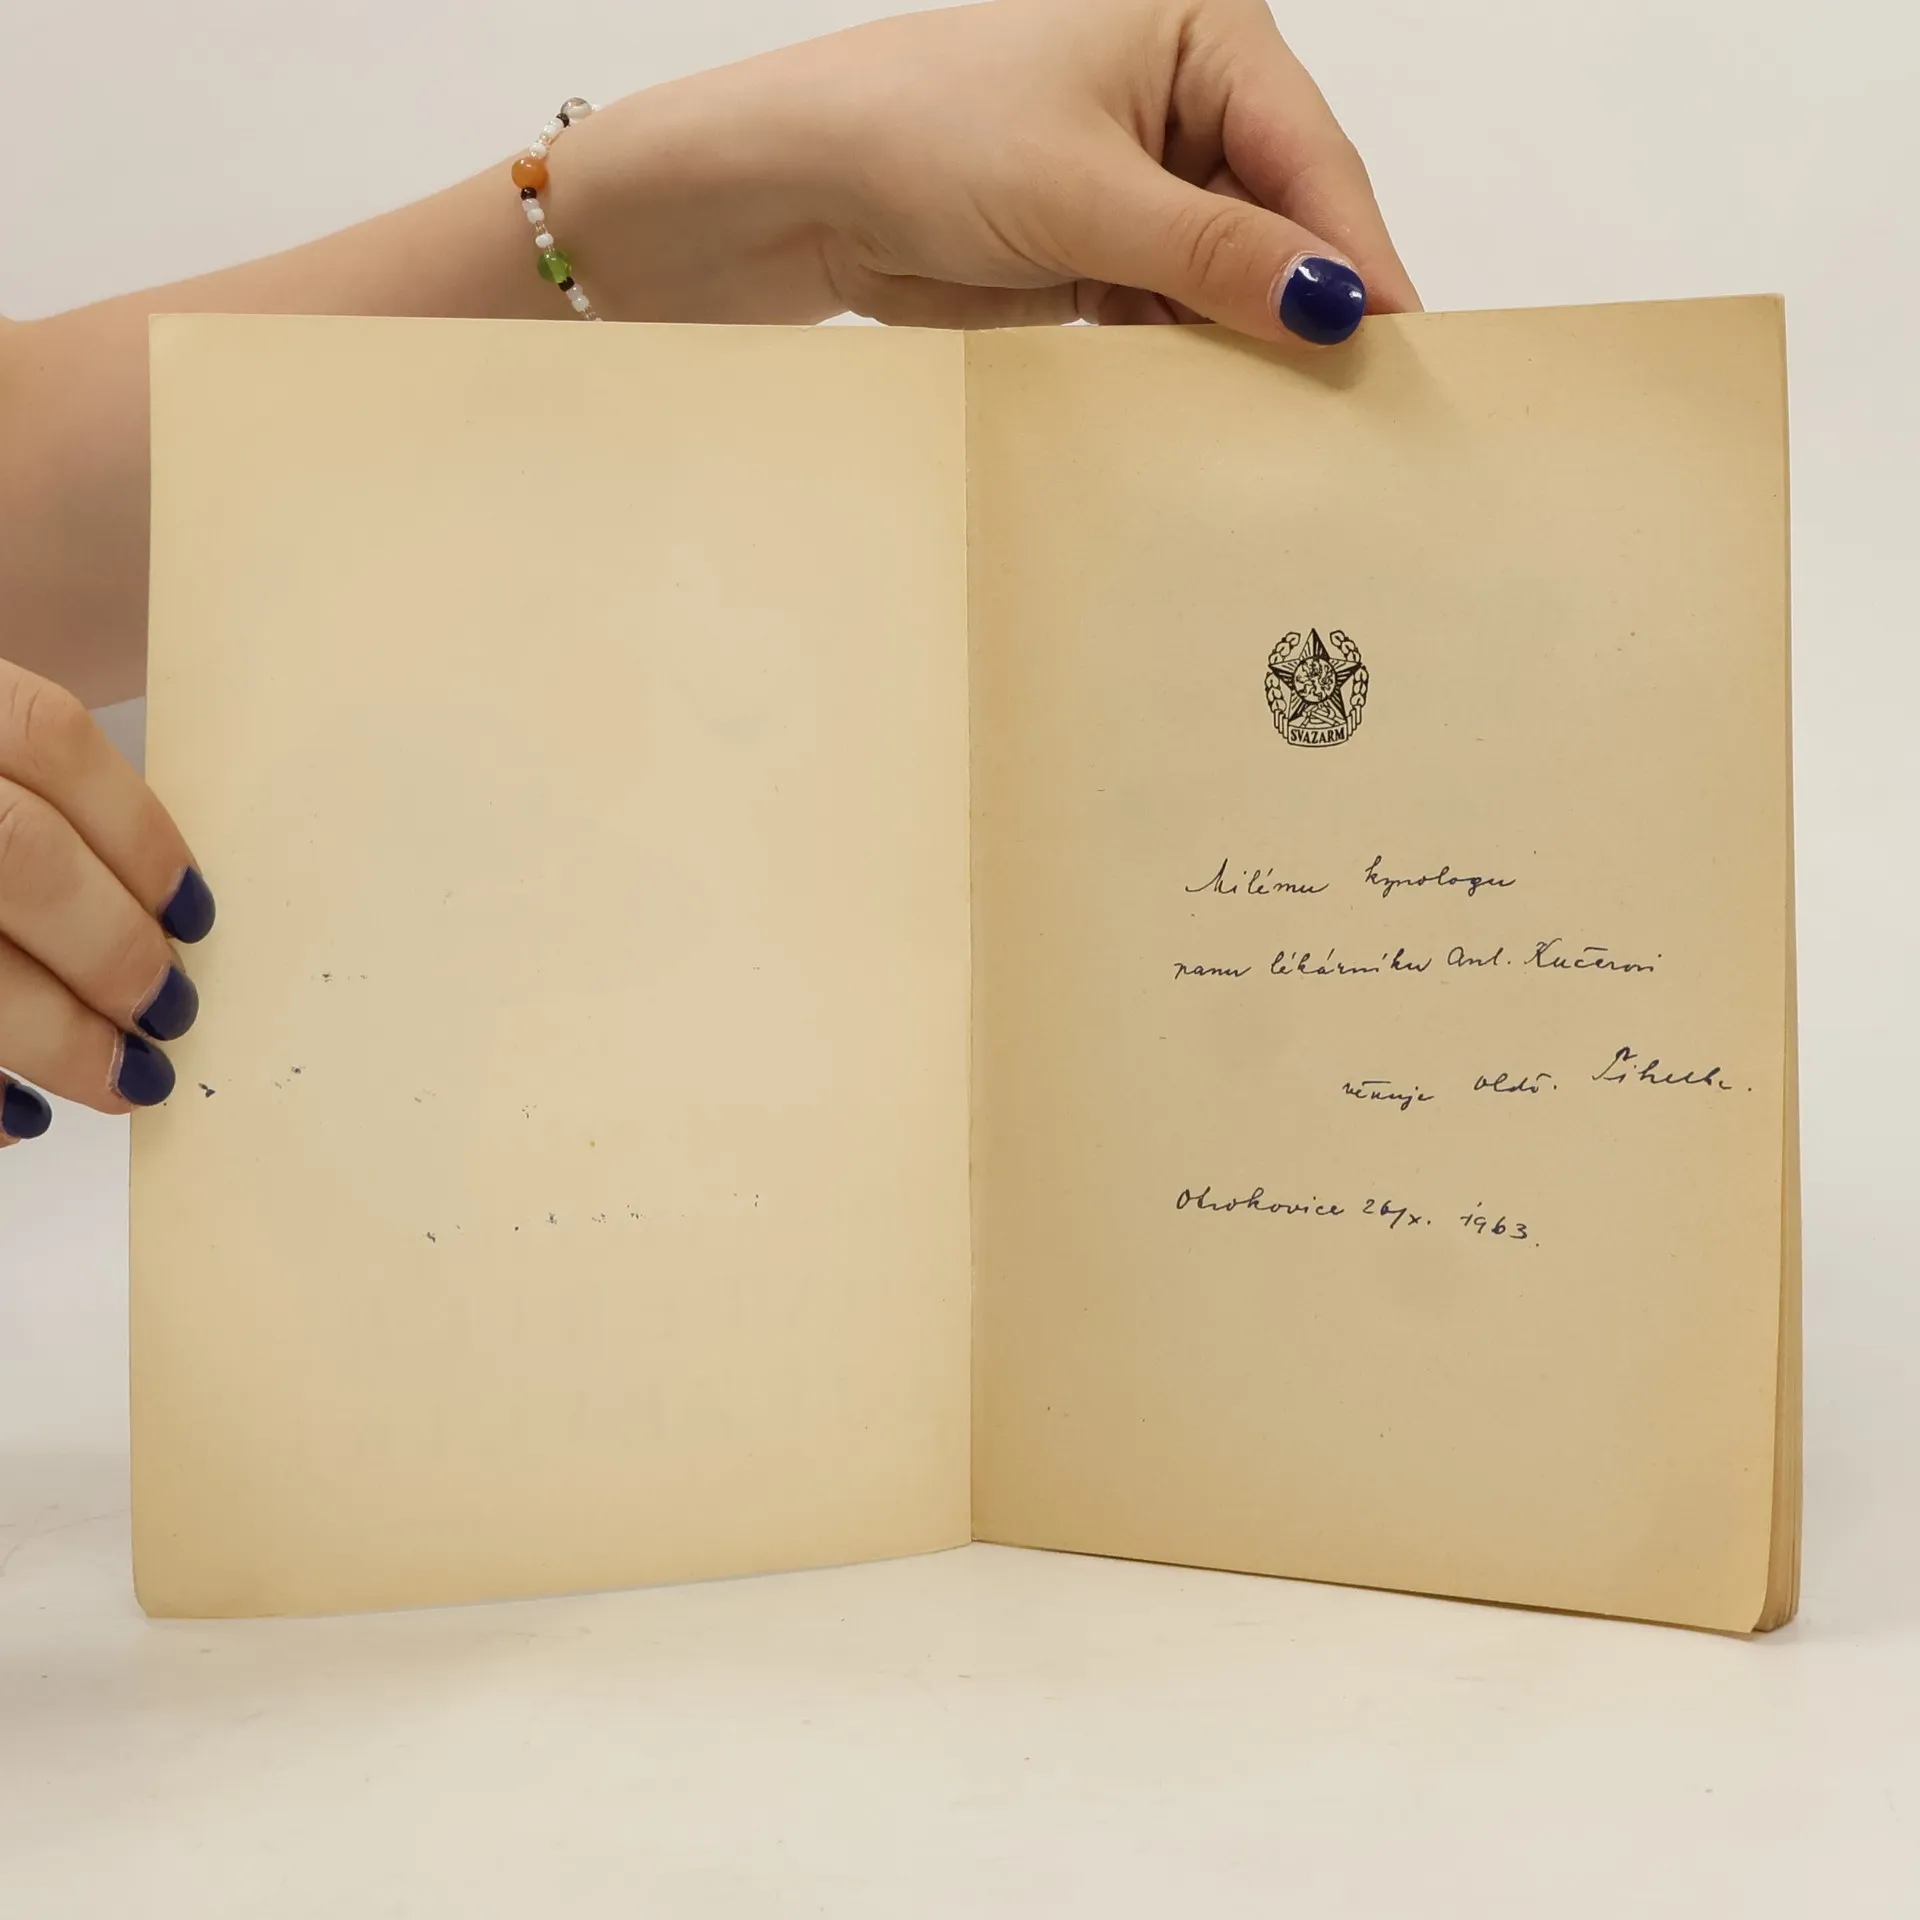 SVAZARM
Milému kynologu
panu lékárníku Ant. Kučerovi
věnuje Oldř.
Otrokovice 26/X. 1963.